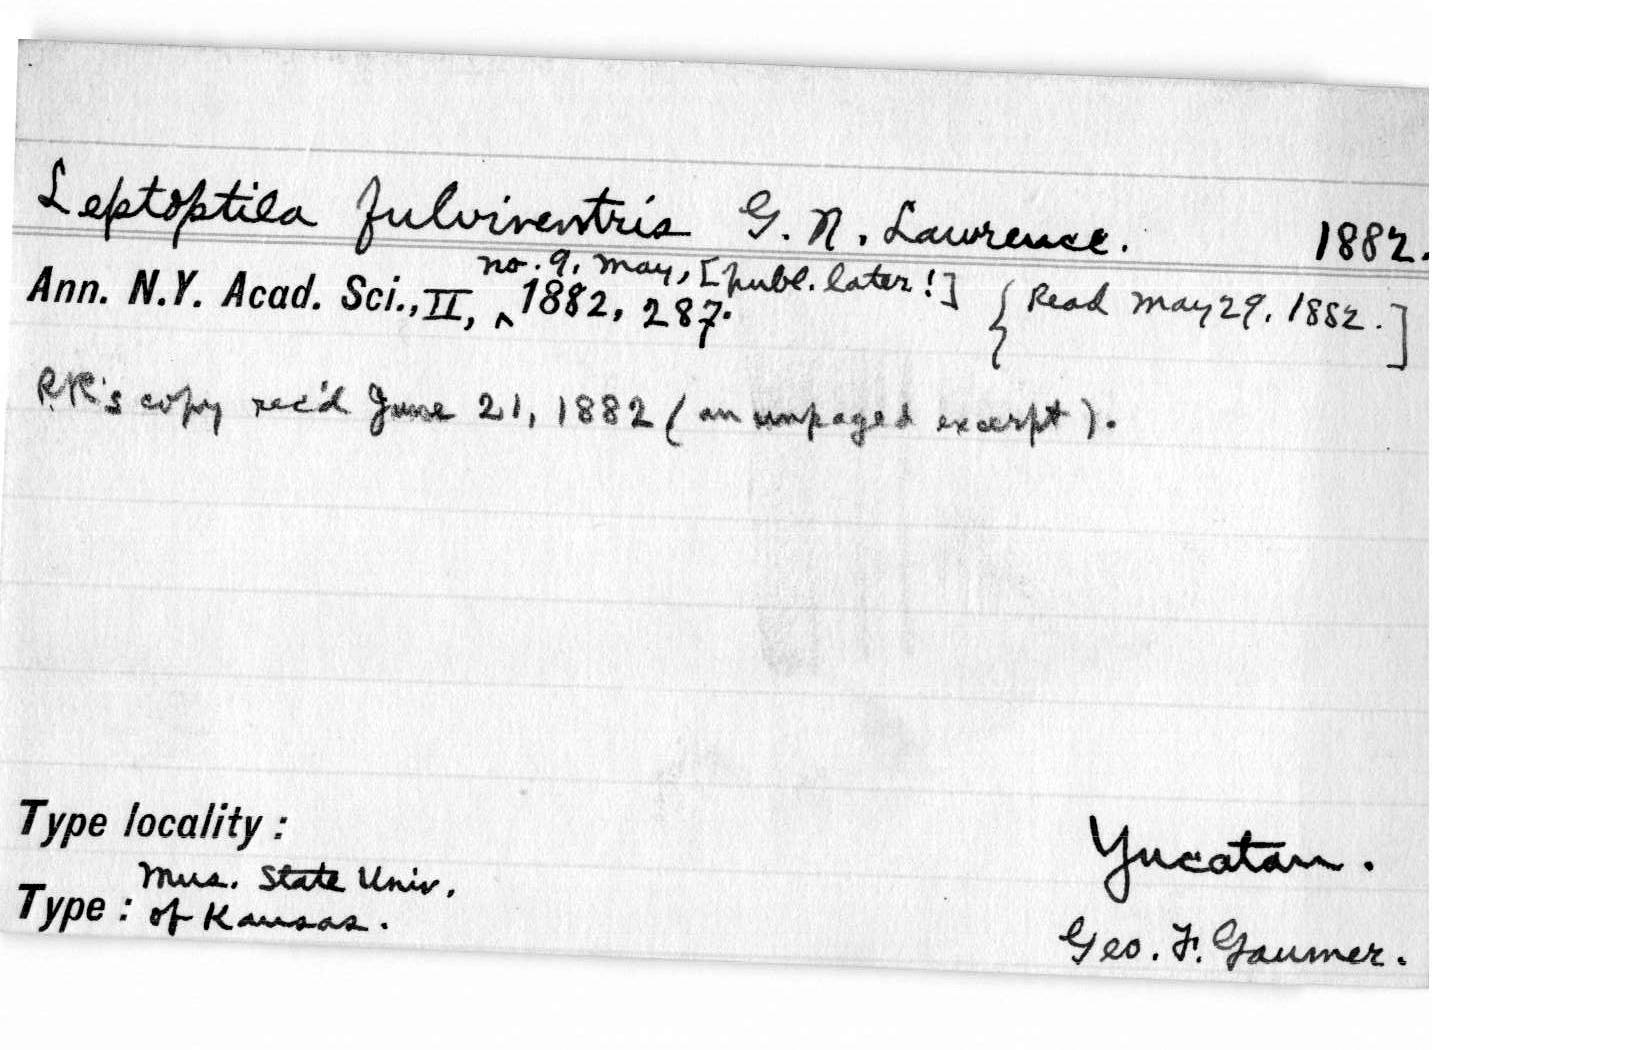 Leptoptila fulviventris G. N. Lawrence. 1882.
no. 9, May, [publ. later!]
Ann. N.Y. Acad. Sci., II, ^ 1882, 287. { Read May 29, 1882. ]
RR's copy rec'd June 21, 1882 (an unpaged excerpt).
Type locality: Yucatan.
Mus. State Univ.
Type: of Kansas. Geo. F. Gaumer.